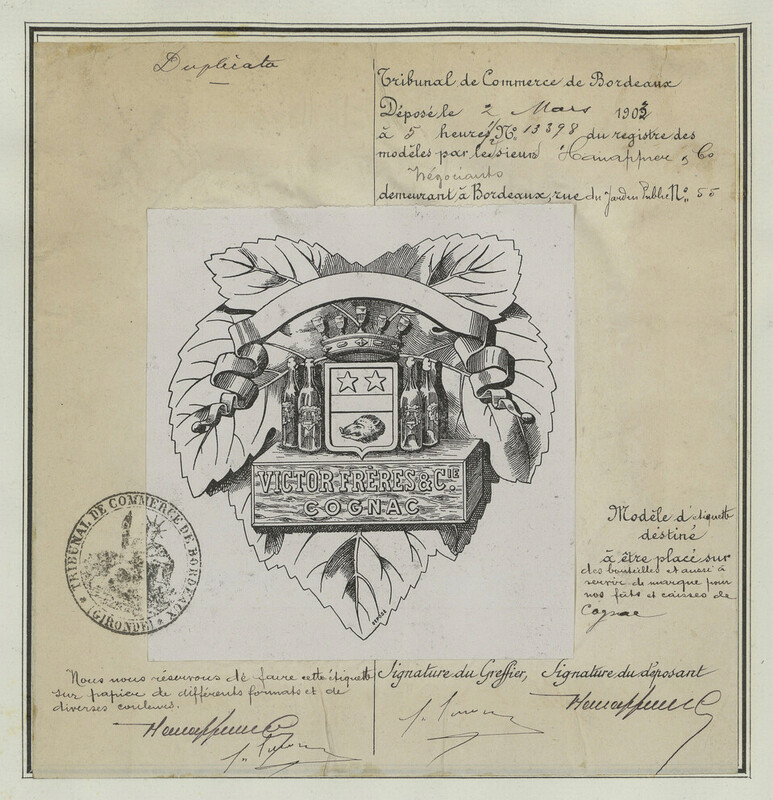 Duplicata
Tribunal de Commerce de Bordeaux
Déposé le 2 Mars 1903
à 5 heures ½ Nº 13398 du registre des
modèles par le sieurs Hanappier & Co
Négociants
demeurant à Bordeaux, rue du Jardin Public Nº 55
VICTOR FRÈRES & CIE
COGNAC
TRIBUNAL DE COMMERCE DE BORDEAUX
(GIRONDE)
Modèle d'étiquette
déstiné
à être placé sur
des bouteilles et aussi à
servir de marque pour
nos fûts et caisses de
Cognac
Nous nous réservons de faire cette étiquette
sur papier de différents formats et de
diverses couleurs.
Signature du Greffier, Signature du déposant
Hanappier & Co
Hanappier & Co